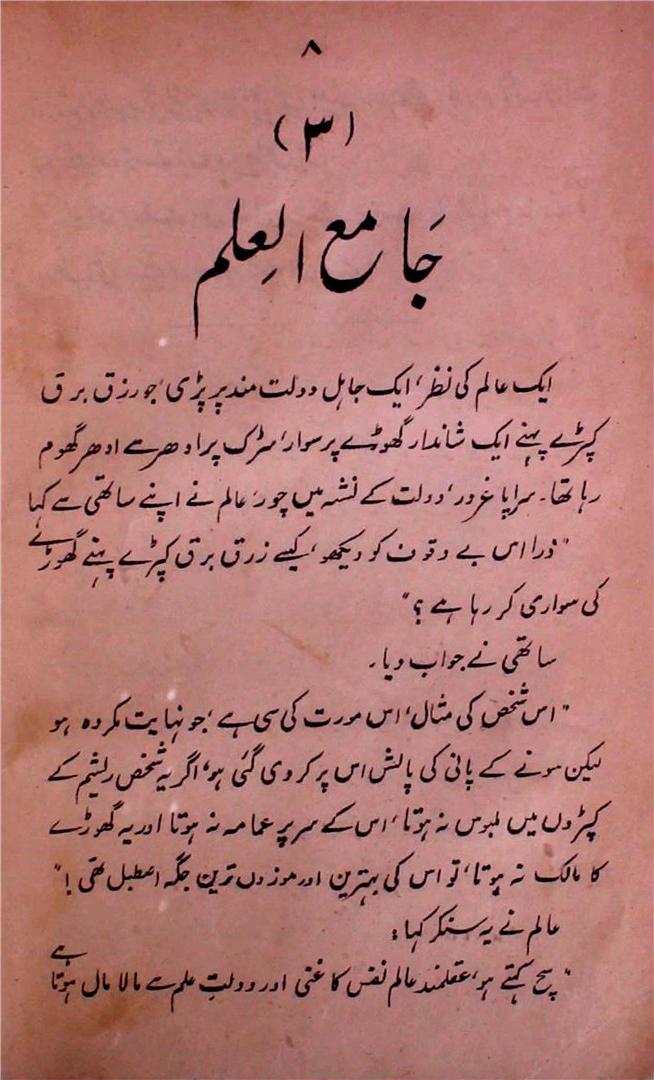 ۸
(۳)
جَامع العِلم
ایک عالم کی نظر، ایک جاہل دولت مند پر پڑی، جو رزق برق
کپڑے پہنے ایک شاندار گھوڑے پر سوار، سڑک پر ادھر سے ادھر گھوم
رہا تھا۔ سراپا غرور، دولت کے نشہ میں چور، عالم نے اپنے ساتھی سے کہا
"ذرا اس بے وقوف کو دیکھو، کیسے زرق برق کپڑے پہنے گھوڑے
کی سواری کر رہا ہے؟"
ساتھی نے جواب دیا۔
"اس شخص کی مثال، اس مورت کی سی ہے، جو نہایت مکروہ ہو
لیکن سونے کے پانی کی پالش اس پر کر دی گئی ہو، اگر یہ شخص ریشم کے
کپڑوں میں ملبوس نہ ہوتا، اس کے سر پر عمامہ نہ ہوتا اور یہ گھوڑے
کا مالک نہ ہوتا، تو اس کی بہترین اور موزوں ترین جگہ اصطبل تھی!"
عالم نے یہ سنکر کہا:
"سچ کہتے ہو، عقلمند عالم نفس کا غنی اور دولتِ علم سے مالا مال ہوتا ہے